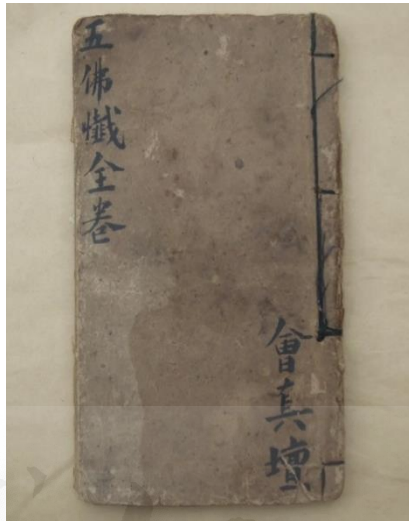 五佛懴全卷
會真壇